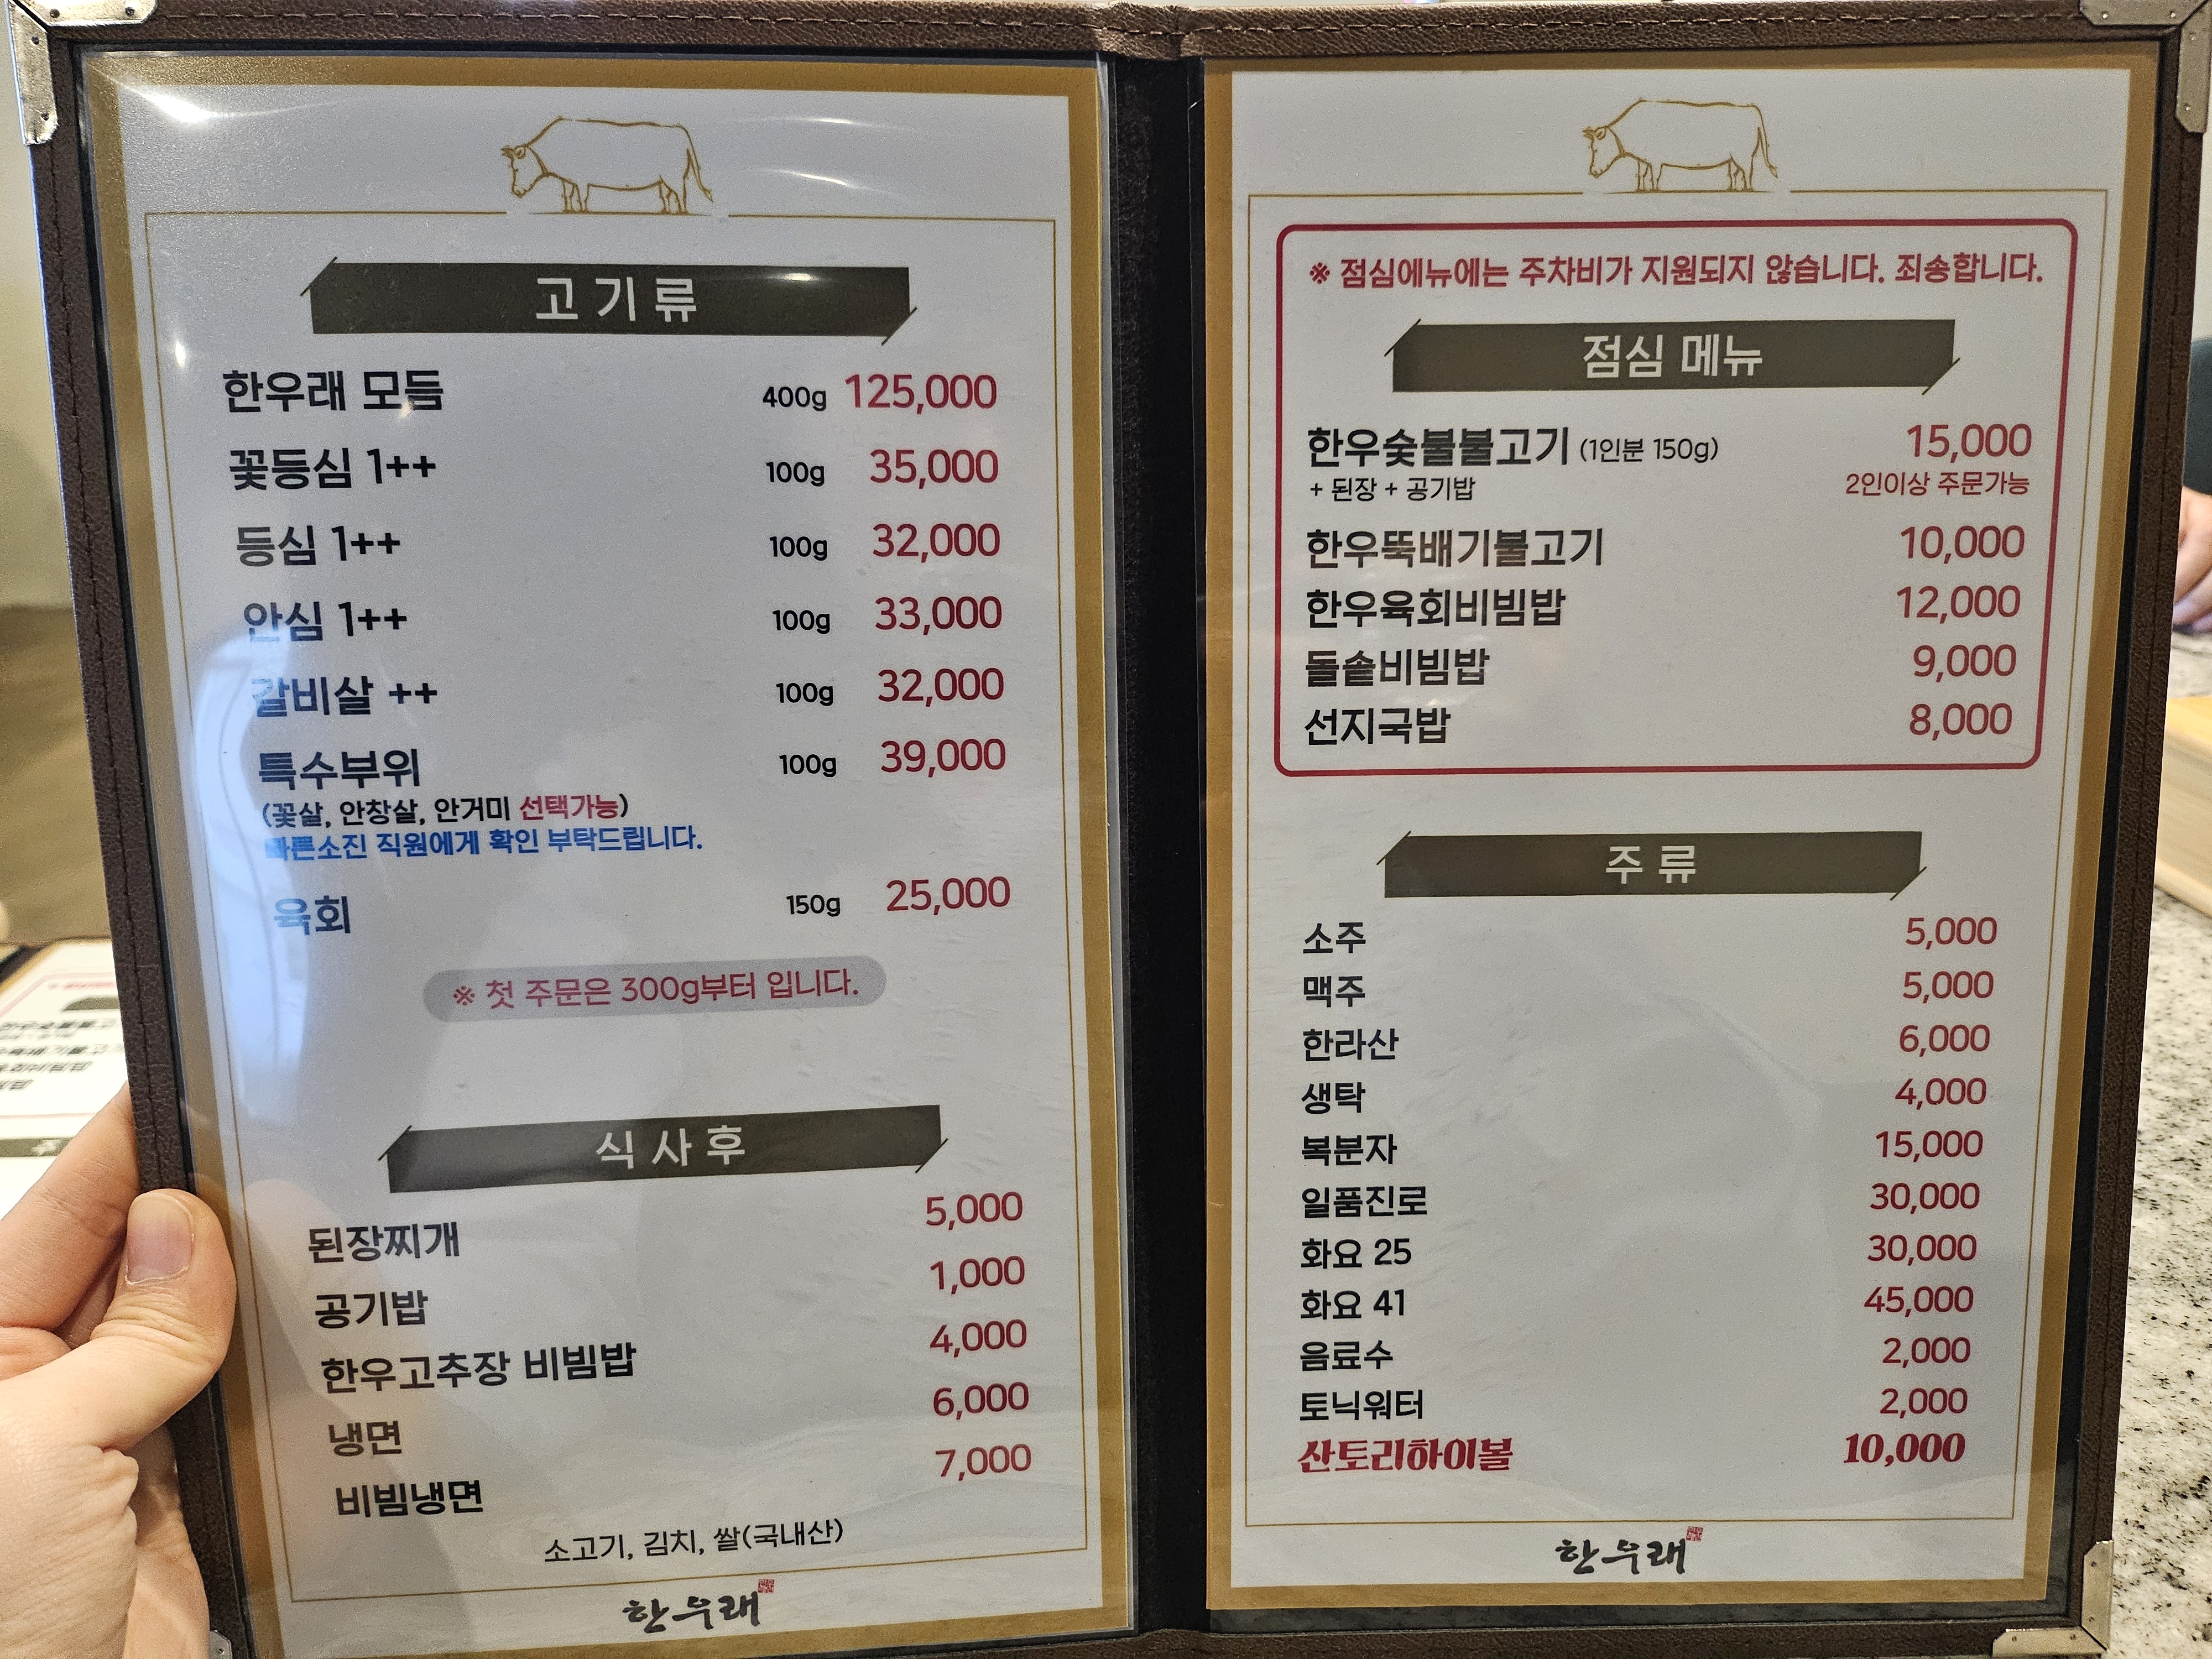 고기류
한우래 모듬 400g 125,000
꽃등심 1++ 100g 35,000
등심 1++ 100g 32,000
안심 1++ 100g 33,000
갈비살 ++ 100g 32,000
특수부위 100g 39,000
(꽃살, 안창살, 안거미 선택가능)
빠른소진 직원에게 확인 부탁드립니다.
육회 150g 25,000
※ 첫 주문은 300g부터 입니다.
식사후
된장찌개 5,000
공기밥 1,000
한우고추장 비빔밥 4,000
냉면 6,000
비빔냉면 7,000
소고기, 김치, 쌀(국내산)
한우래
※ 점심에뉴에는 주차비가 지원되지 않습니다. 죄송합니다.
점심 메뉴
한우숯불불고기 (1인분 150g) 15,000
+ 된장 + 공기밥 2인이상 주문가능
한우뚝배기불고기 10,000
한우육회비빔밥 12,000
돌솥비빔밥 9,000
선지국밥 8,000
주류
소주 5,000
맥주 5,000
한라산 6,000
생탁 4,000
복분자 15,000
일품진로 30,000
화요 25 30,000
화요 41 45,000
음료수 2,000
토닉워터 2,000
산토리하이볼 10,000
한우래